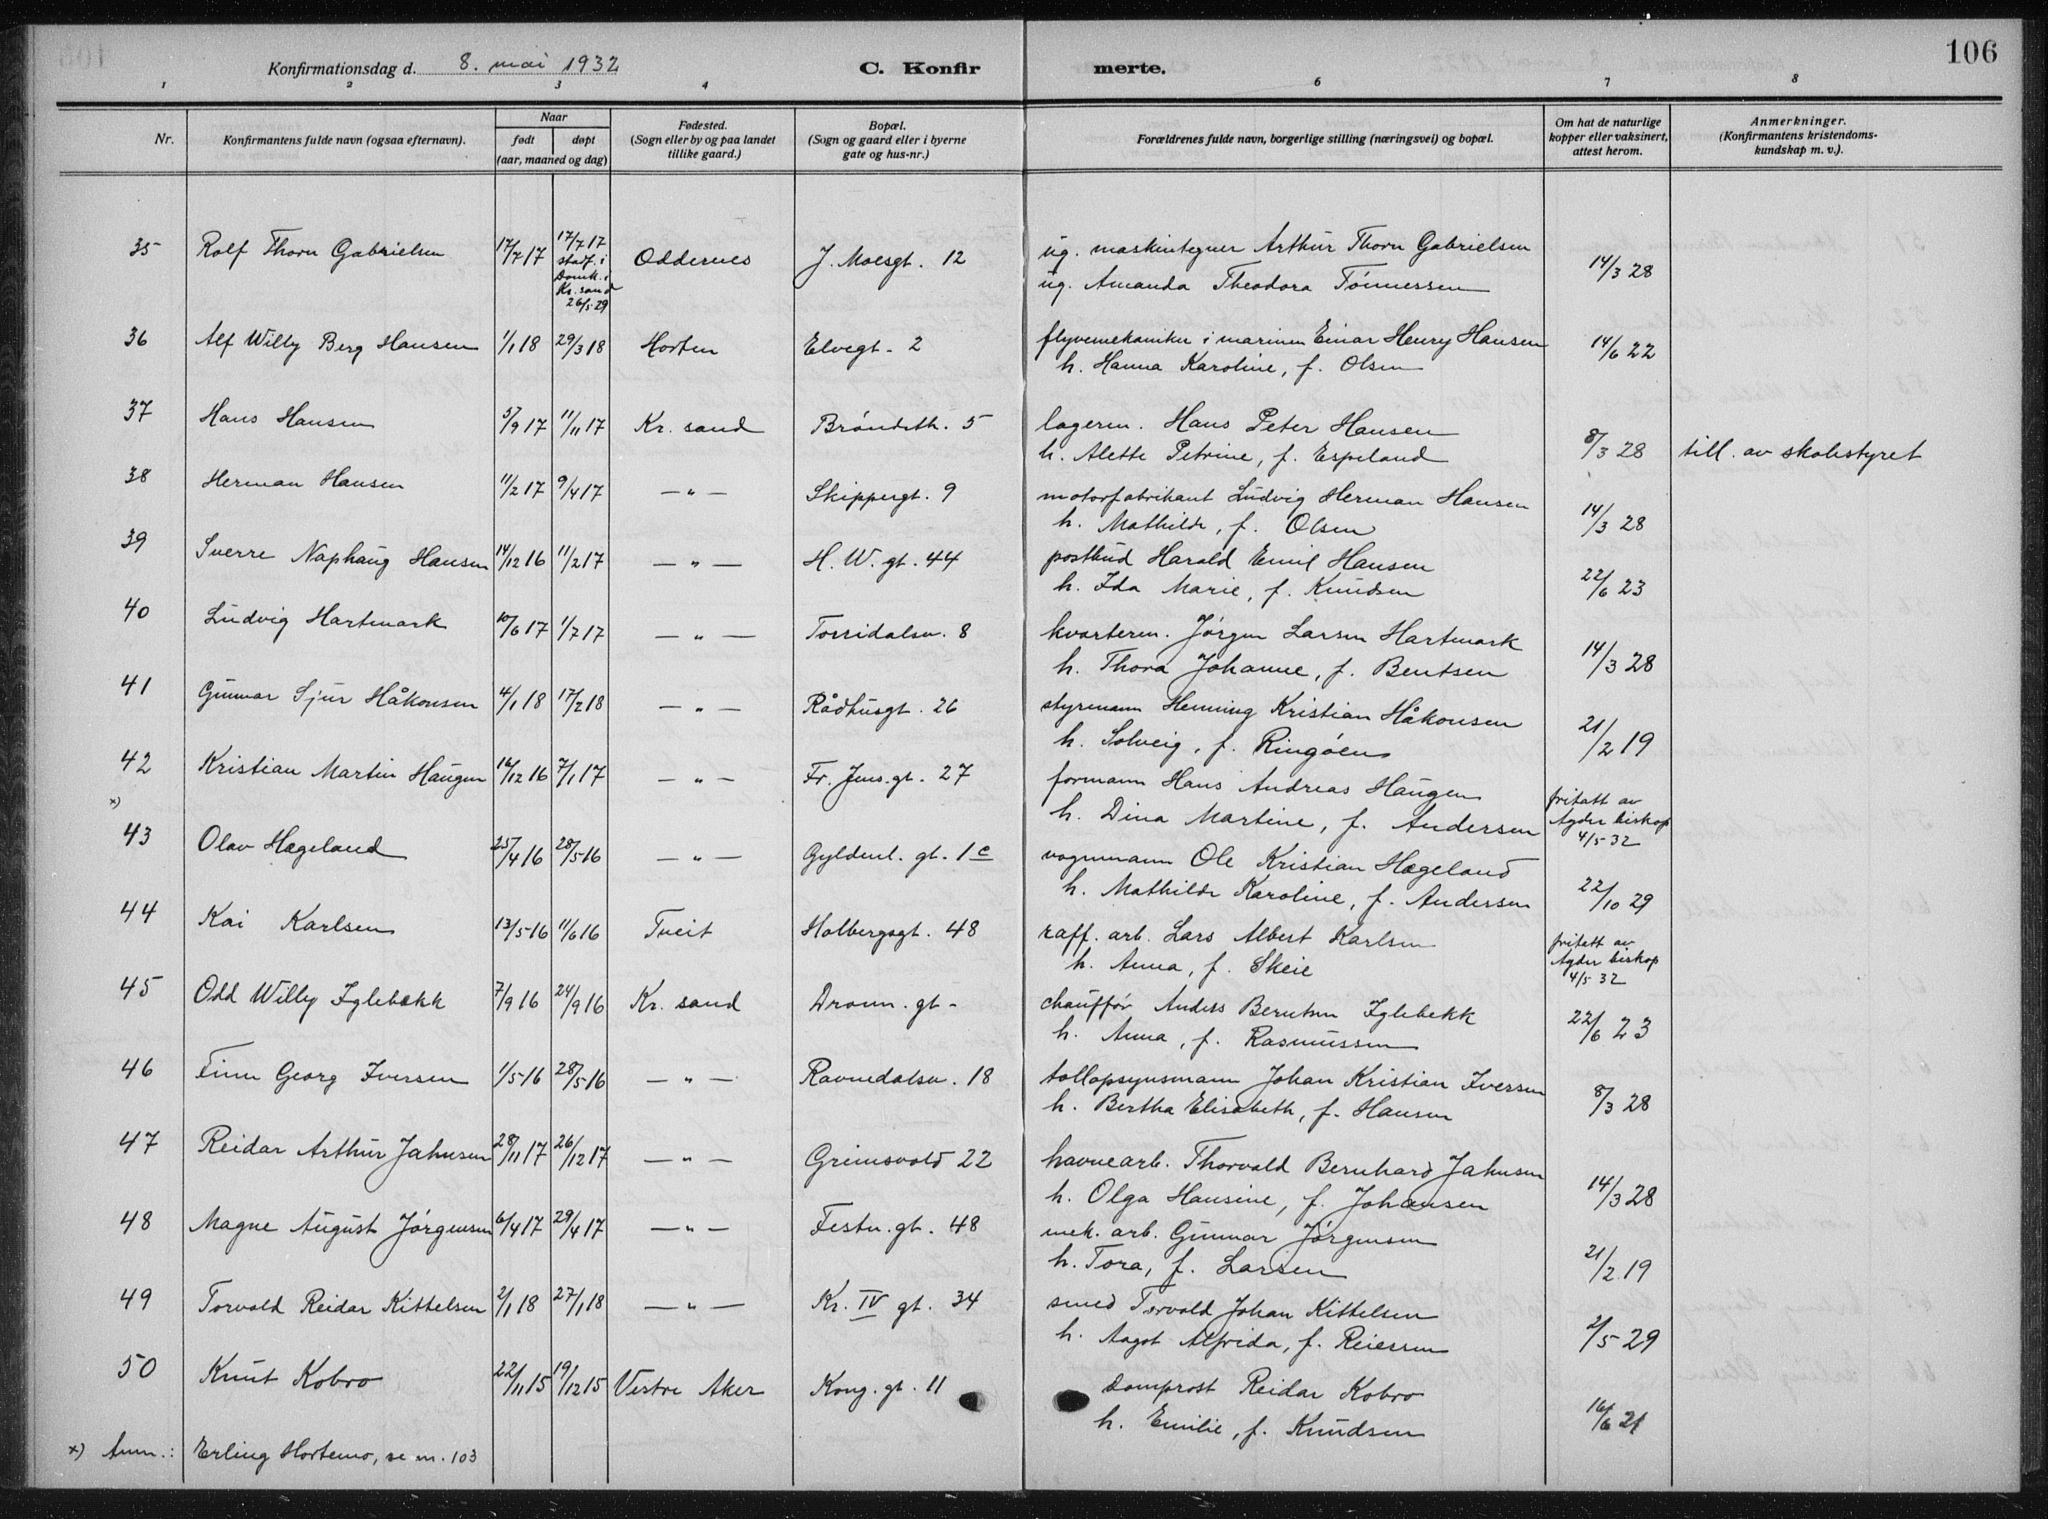 106
Konfirmationsdag d. 8. mai 1932 C. Konfir merte.
1 2 3 4 5 6 7 8
Nr. Konfirmantens fulde navn (ogsaa efternavn). Naar født døpt (aar, maaned og dag) Fødested. (Sogn eller by og paa landet tillike gaard.) Bopæl. (Sogn og gaard eller i byerne gate og hus-nr.) Forældrenes fulde navn, borgerlige stilling (næringsvei) og bopæl. Om hat de naturlige kopper eller vaksinert, attest herom. Anmerkninger. (Konfirmantens kristendoms-kundskap m. v.).
35 Rolf Thorn Gabrielsen 17/7 17 17/7 17 stadf. i Domk. i Kr. sand 26/5 29 Oddernes J. Moesgt. 12 ug. maskintegner Arthur Thorn Gabrielsen 14/3 28
ug. Amanda Theodora Tönnessen
36 Alf Willy Berg Hansen 1/1 18 29/3 18 Horten Elvegt. 2 flyvemekaniker i marinen Einar Henry Hansen 14/6 22
h. Hanna Karoline, f. Olsen
37 Hans Hansen 5/9 17 11/11 17 Kr. sand Bröndsth. 5 lagerm. Hans Peter Hansen 8/3 28 till. av skolestyret
h. Alette Petrine, f. Espeland
38 Herman Hansen 11/2 17 9/4 17 — " — Skippergt. 9 motorfabrikant Ludvig Herman Hansen 14/3 28
h. Mathilde, f. Olsen
39 Sverre Naphaug Hansen 14/12 16 11/2 17 — " — H. W. gt. 44 postbud Harald Emil Hansen 22/6 23
h. Ida Marie, f. Knudsen
40 Ludvig Hartmark 10/6 17 1/7 17 — " — Torridalsv. 8 kvarterm. Jørgen Larsen Hartmark 14/3 28
h. Thora Johanne, f. Bentsen
41 Gunnar Sjur Håkonsen 4/1 18 17/2 18 — " — Rådhusgt. 26 styrmann Henning Kristian Håkonsen 21/2 19
h. Solveig, f. Ringöen
42 Kristian Martin Haugen 16/12 16 7/1 17 — " — Fr. Jens. gt. 27 formann Hans Andreas Haugen fritatt av Agder biskop 4/5 32
x) h. Dina Martine, f. Andersen
43 Olav Hægeland 25/4 16 28/5 16 — " — Gyldenl. gt. 1c vognmann Ole Kristian Hægeland 22/10 29
h. Mathilde Karoline, f. Andersen
44 Kai Karlsen 13/5 16 11/6 16 Tveit Holbergsgt. 48 raff. arb. Lars Albert Karlsen fritatt av Agder biskop 4/5 32
h. Anna, f. Skeie
45 Odd Willy Iglebekk 7/9 16 24/9 16 Kr. sand Dronn. gt - chauffør Anders Berntsen Iglebekk 22/6 23
h. Anna, f. Rasmussen
46 Finn Georg Iversen 1/5 16 28/5 16 — " — Ravnedalsv. 18 tollopsynsmann Johan Kristian Iversen 8/3 28
h. Bertha Elisabeth, f. Hansen
47 Reidar Arthur Jahnsen 28/11 17 26/12 17 — " — Grimsvold 22 havnearb. Thorvald Bernhard Jahnsen 14/3 28
h. Olga Hansine, f. Johansen
48 Magne August Jørgensen 6/4 17 29/4 17 — " — Festn. gt. 48 mek. arb. Gunnar Jørgensen 21/2 19
h. Tora, f. Larsen
49 Torvald Reidar Kittelsen 2/1 18 27/1 18 — " — Kr. IV gt. 34 smed Torvald Johan Kittelsen 2/5 29
h. Aagot Alfrida, f. Reiersen
50 Knut Kobro 22/11 15 19/12 15 Vestre Aker Kong. gt. 11 domprost Reidar Kobro 16/6 21
h. Emilie, f. Knudsen
x) Anm.: Erling Hortemo, se nr. 103